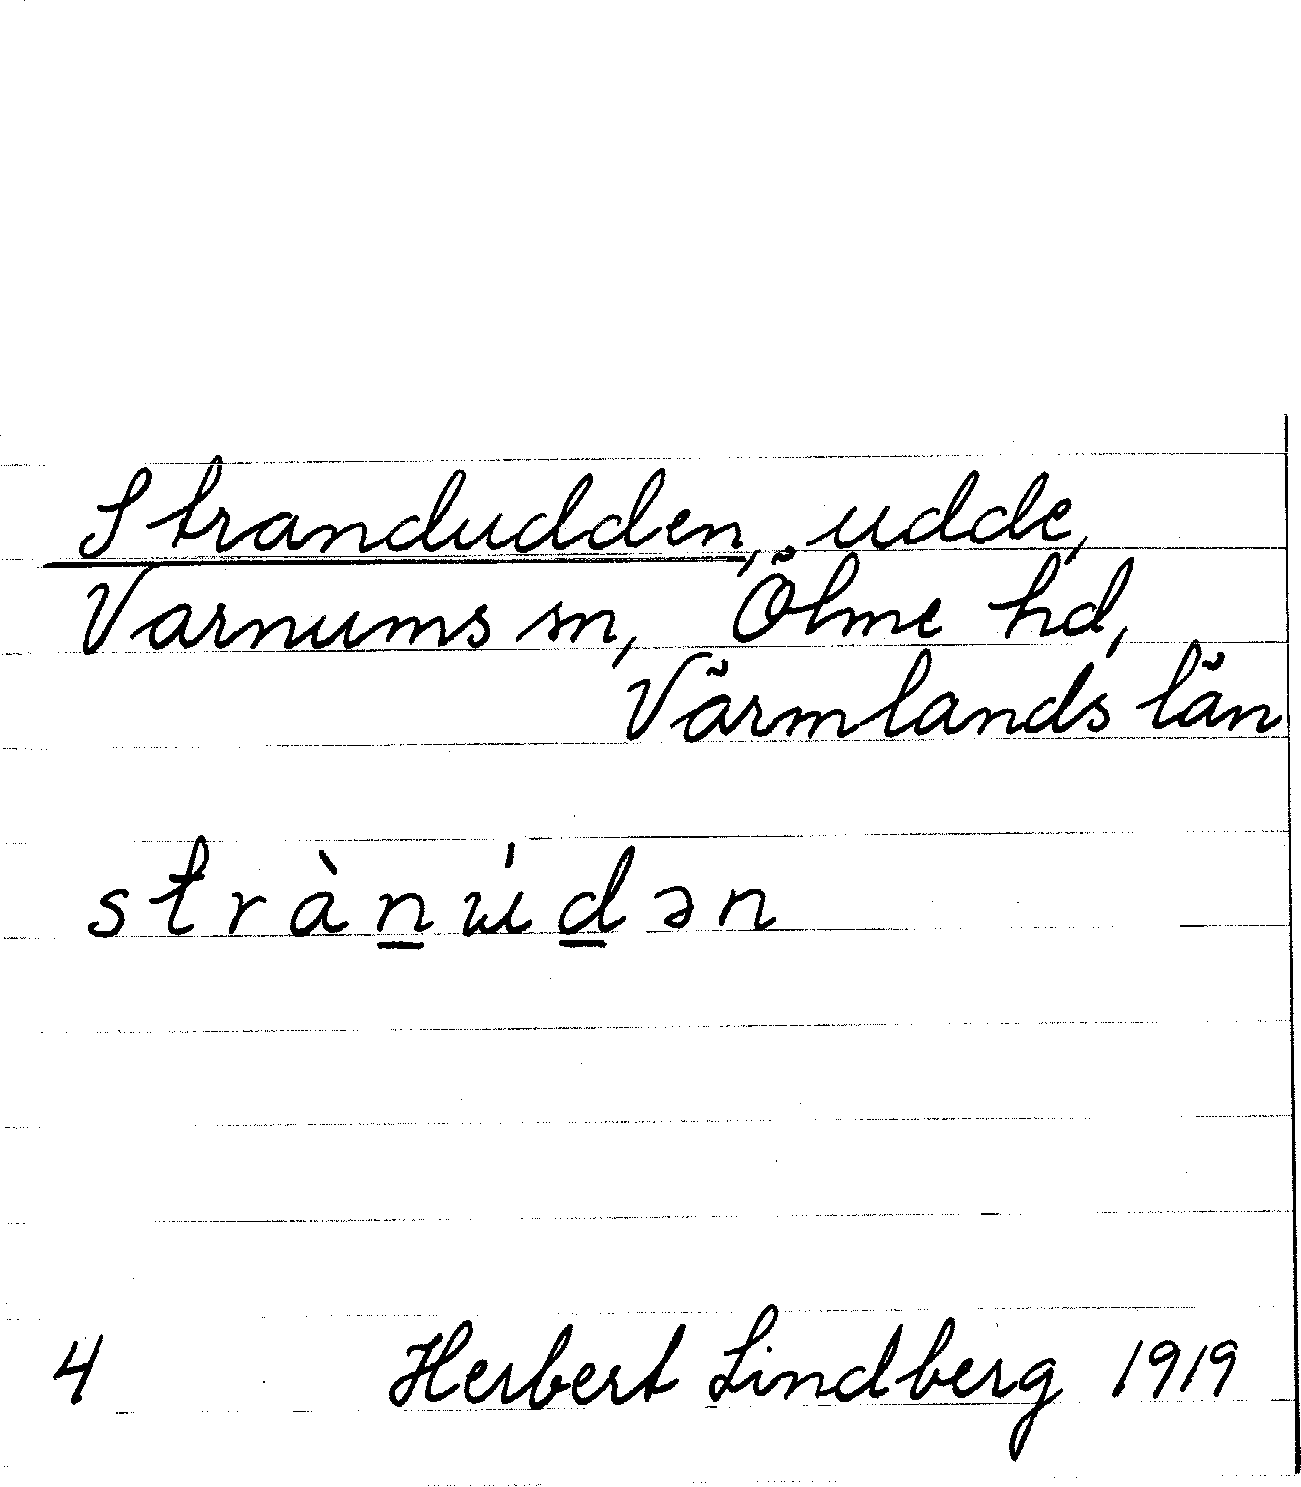 Strandudden, udde,
Varnums sn, Ölme hd,
Värmlands län
strànúdən
4 Herbert Lindberg 1919